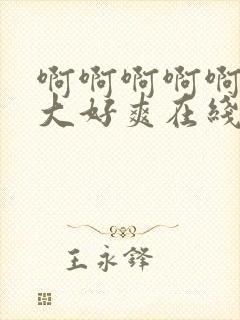 啊啊啊啊啊
大好爽在线
王永锋